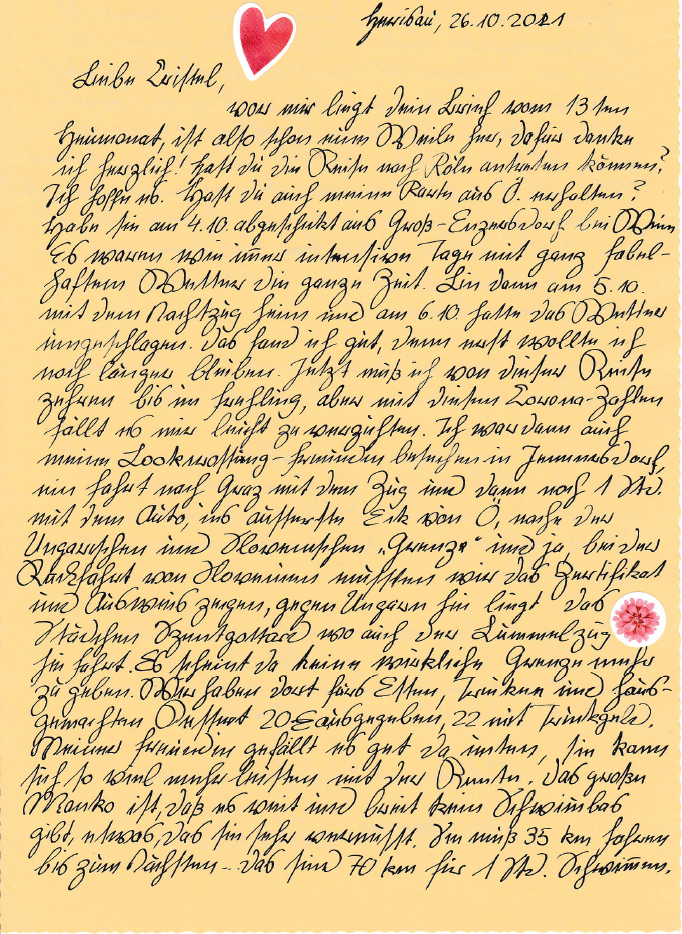 Herisau, 26.10.2021
Liebe Cristel,
vor mir liegt dein Brief vom 13ten
Heumonat, ist also schon eine Weile her, dafür danke
ich herzlich! Hast du die Reise nach Köln antreten können?
Ich hoffe es. Hast du auch meine Karte aus Ö. erhalten?
Habe sie am 4.10. abgeschikt aus Groß-Enzersdorf bei Wien
Es waren wie im̅er intensive Tage mit ganz fabel-
haftem Wetter die ganze Zeit. Bin dann am 5.10.
mit dem Nachtzug heim und am 6.10. hatte das Wetter
umgeschlagen. Das fand ich gut, denn erst wollte ich
noch länger bleiben. Jetzt muß ich von dieser Reise
zehren bis im Frehling, aber mit diesen Corona-Zahlen
fällt es mir leicht zu verzichten. Ich war dann auch
meine Bookcrossing-Freundin besuchen in Jennersdorf,
ein Fahrt nach Graz mit dem Zug und dann noch 1 Std.
mit dem Auto, ins äusserste Eck von Ö, nahe der
Ungarischen und Slowenischen „Grenze" und ja, bei der
Rückfahrt von Slowenien mussten wir das Zertifikat
und Ausweis zeigen, gegen Ungarn hin liegt das
Städchen Szentgottard wo auch der Bummelzug
hin fährt. Es scheint da keine wirkliche Grenze mehr
zu geben. Wir haben dort fürs Essen, Trinken und haus-
gemachten Dessert 20€ ausgegeben, 22 mit Trinkgeld.
Meiner Freundin gefällt es gut da unten, sie kann
sich so viel mehr leisten mit der Rente. Das große
Manko ist, daß es weit und breit kein Schwimbad
gibt, etwas, das sie sehr vermisst. Sie muß 35 km fahren
bis zum Nächsten - das sind 70 km für 1 Std. Schwim̅en.